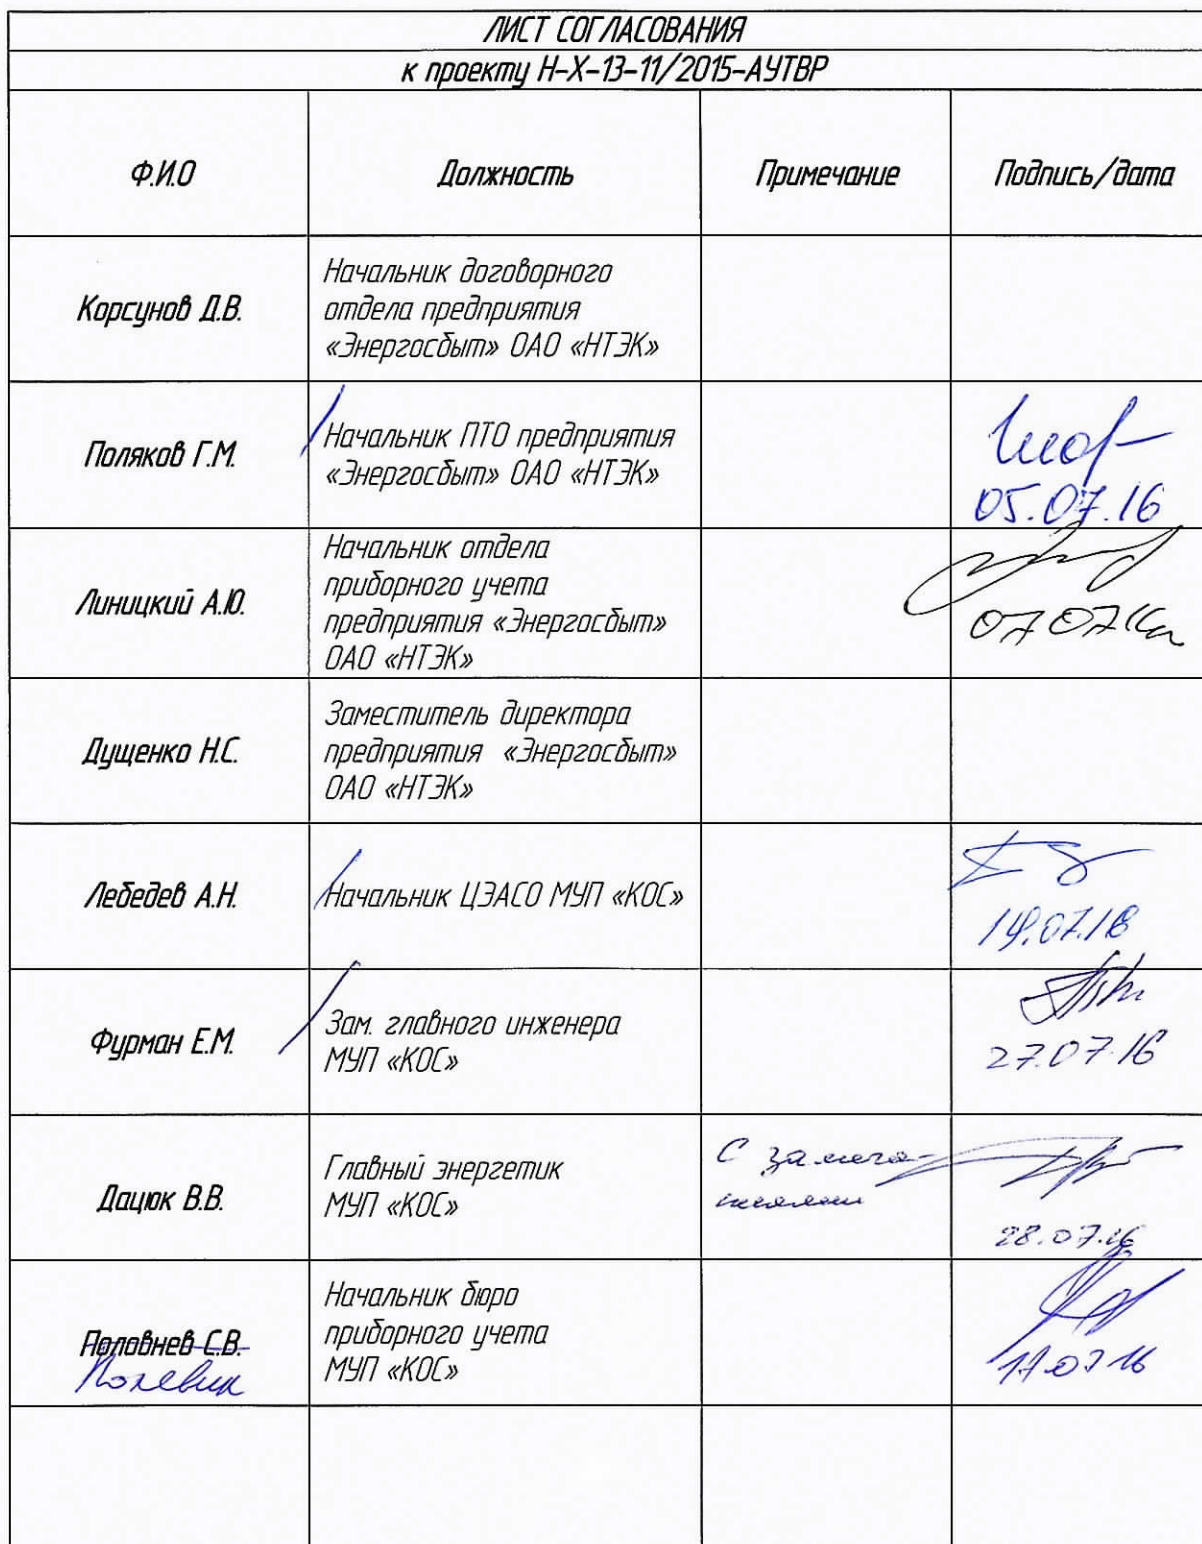 ЛИСТ СОГЛАСОВАНИЯ
к проекту Н-Х-13-11/2015-АУТВР
Ф.И.О Должность Примечание Подпись/дата
Корсунов Д.В.
Начальник договорного
отдела предприятия
«Энергосбыт» ОАО «НТЭК»
Поляков Г.М.
Начальник ПТО предприятия
«Энергосбыт» ОАО «НТЭК»
05.07.16
Линицкий А.Ю.
Начальник отдела
приборного учета
предприятия «Энергосбыт»
ОАО «НТЭК»
07 07 16
Дущенко Н.С.
Заместитель директора
предприятия «Энергосбыт»
ОАО «НТЭК»
Лебедев А.Н.
Начальник ЦЭАСО МУП «КОС»
Фурман Е.М.
Зам. главного инженера
МУП «КОС»
27.07.16
Дацюк В.В.
Главный энергетик
МУП «КОС»
С замеча-
ниями
28.07.16
Половнев С.В.
Полевик
Начальник бюро
приборного учета
МУП «КОС»